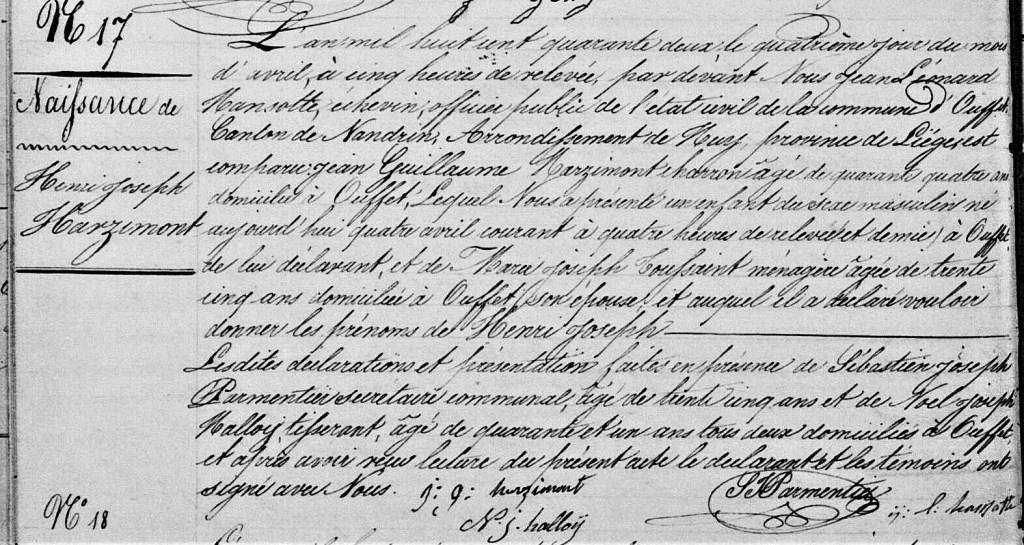 N° 17
Naissance de
Henri Joseph
Harzimont
L'an mil huit cent quarante deux le quatrième jour du mois
d'avril, à cinq heures de relevée, par devant Nous Jean Léonard
Hansotte, échevin, officier public de l'état civil de la commune d'Ouffet,
Canton de Nandrin, Arrondissement de Huy, province de Liège, est
comparu Jean Guillaume Harzimont charron âgé de quarante quatre ans
domicilié à Ouffet, Lequel Nous a présenté un enfant du sexe masculin né
aujourd'hui quatre avril courant à quatre heures de relevée (et demie) à Ouffet
de lui déclarant, et de Marie Joseph Toussaint ménagère âgée de trente
cinq ans domiciliée à Ouffet, son épouse, et auquel il a déclaré vouloir
donner les prénoms de Henri Joseph
Lesdites déclarations et présentation faites en présence de Sébastien Joseph
Parmentier secretaire communal, âgé de trente cinq ans et de Noel Joseph
Halloy, tisserant, âgé de quarante et un ans tous deux domiciliés à Ouffet,
et après avoir reçu lecture du présent acte le déclarant et les temoins ont
signé avec Nous. j: g: harzimont
S J Parmentier
j: l. hansotte
N. j. halloy
N° 18